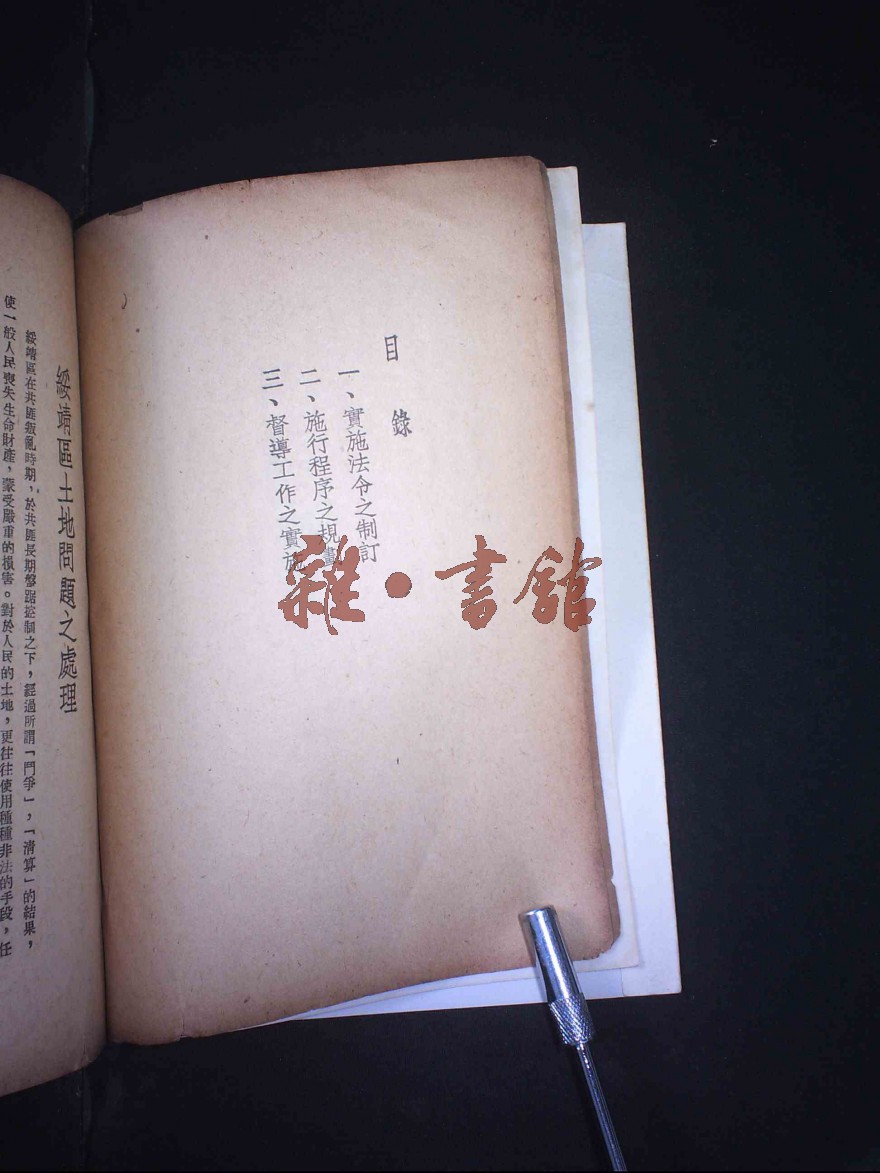 目錄
一、實施法令之制訂
二、施行程序之規劃
三、督導工作之實施
雜·書館
綏靖區土地問題之處理
綏靖區在共匪叛亂時期，於共匪長期盤踞控制之下，經過所謂「鬥爭」，「清算」的結果，
使一般人民喪失生命財產，蒙受嚴重的損害。對於人民的土地，更往往使用種種非法的手段，任